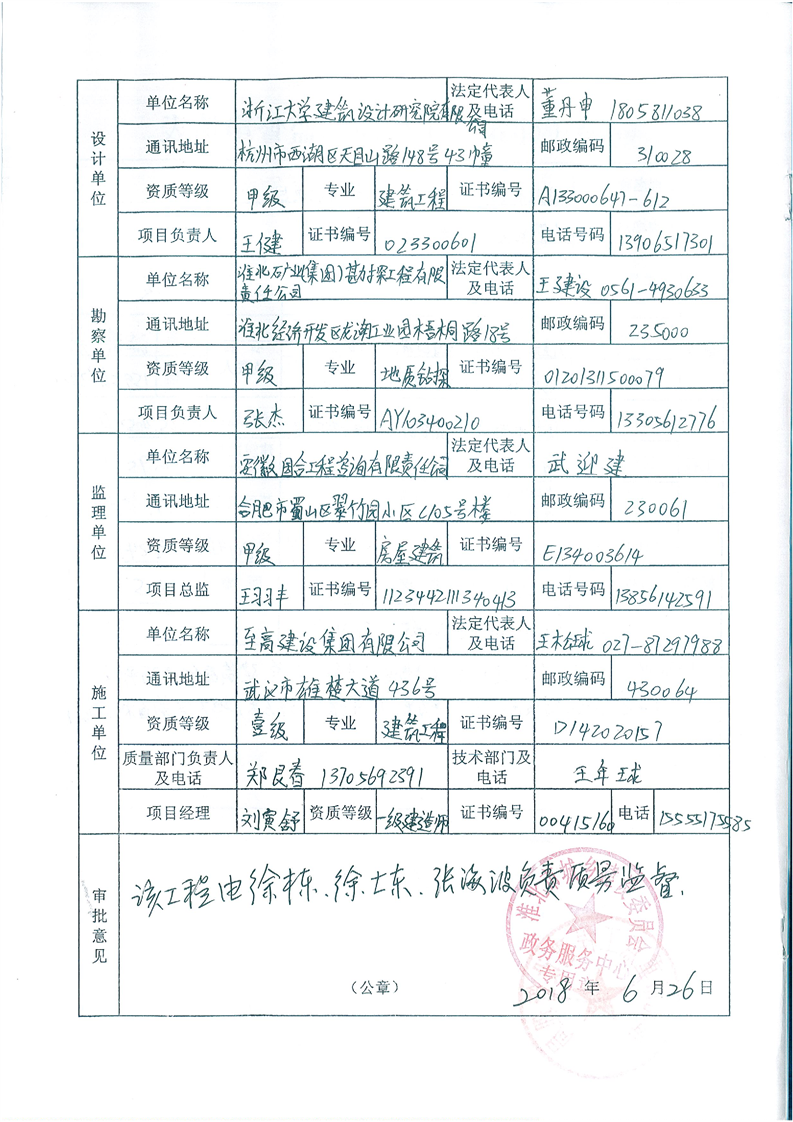 设计单位
单位名称 浙江大学建筑设计研究院有限公司 法定代表人及电话 董丹申 1805811038
通讯地址 杭州市西湖区天目山路148号43幢 邮政编码 310028
资质等级 甲级 专业 建筑工程 证书编号 A133000647-612
项目负责人 王健 证书编号 023300601 电话号码 13906517301
勘察单位
单位名称 淮北矿业(集团)勘探工程有限责任公司 法定代表人及电话 王建设 0561-4930633
通讯地址 淮北经济开发区龙湖工业园梧桐路18号 邮政编码 235000
资质等级 甲级 专业 地质钻探 证书编号 01201311500079
项目负责人 张杰 证书编号 AY103400210 电话号码 13305612776
监理单位
单位名称 安徽国合工程咨询有限责任公司 法定代表人及电话 武迎建
通讯地址 合肥市蜀山区翠竹园小区C105号楼 邮政编码 230061
资质等级 甲级 专业 房屋建筑 证书编号 E134003614
项目总监 王羽丰 证书编号 1123442111340413 电话号码 13856142591
施工单位
单位名称 至高建设集团有限公司 法定代表人及电话 王松球 027-87297988
通讯地址 武汉市雄楚大道436号 邮政编码 430064
资质等级 壹级 专业 建筑工程 证书编号 D142020157
质量部门负责人及电话 郑良春 13705692391 技术部门及电话 王年球
项目经理 刘寅舒 资质等级 一级建造师 证书编号 00415160 电话 15555175585
审批意见
该工程由徐栋、徐士东、张海波负责质量监督.
政务服务中心
专用章
(公章) 2018年6月26日